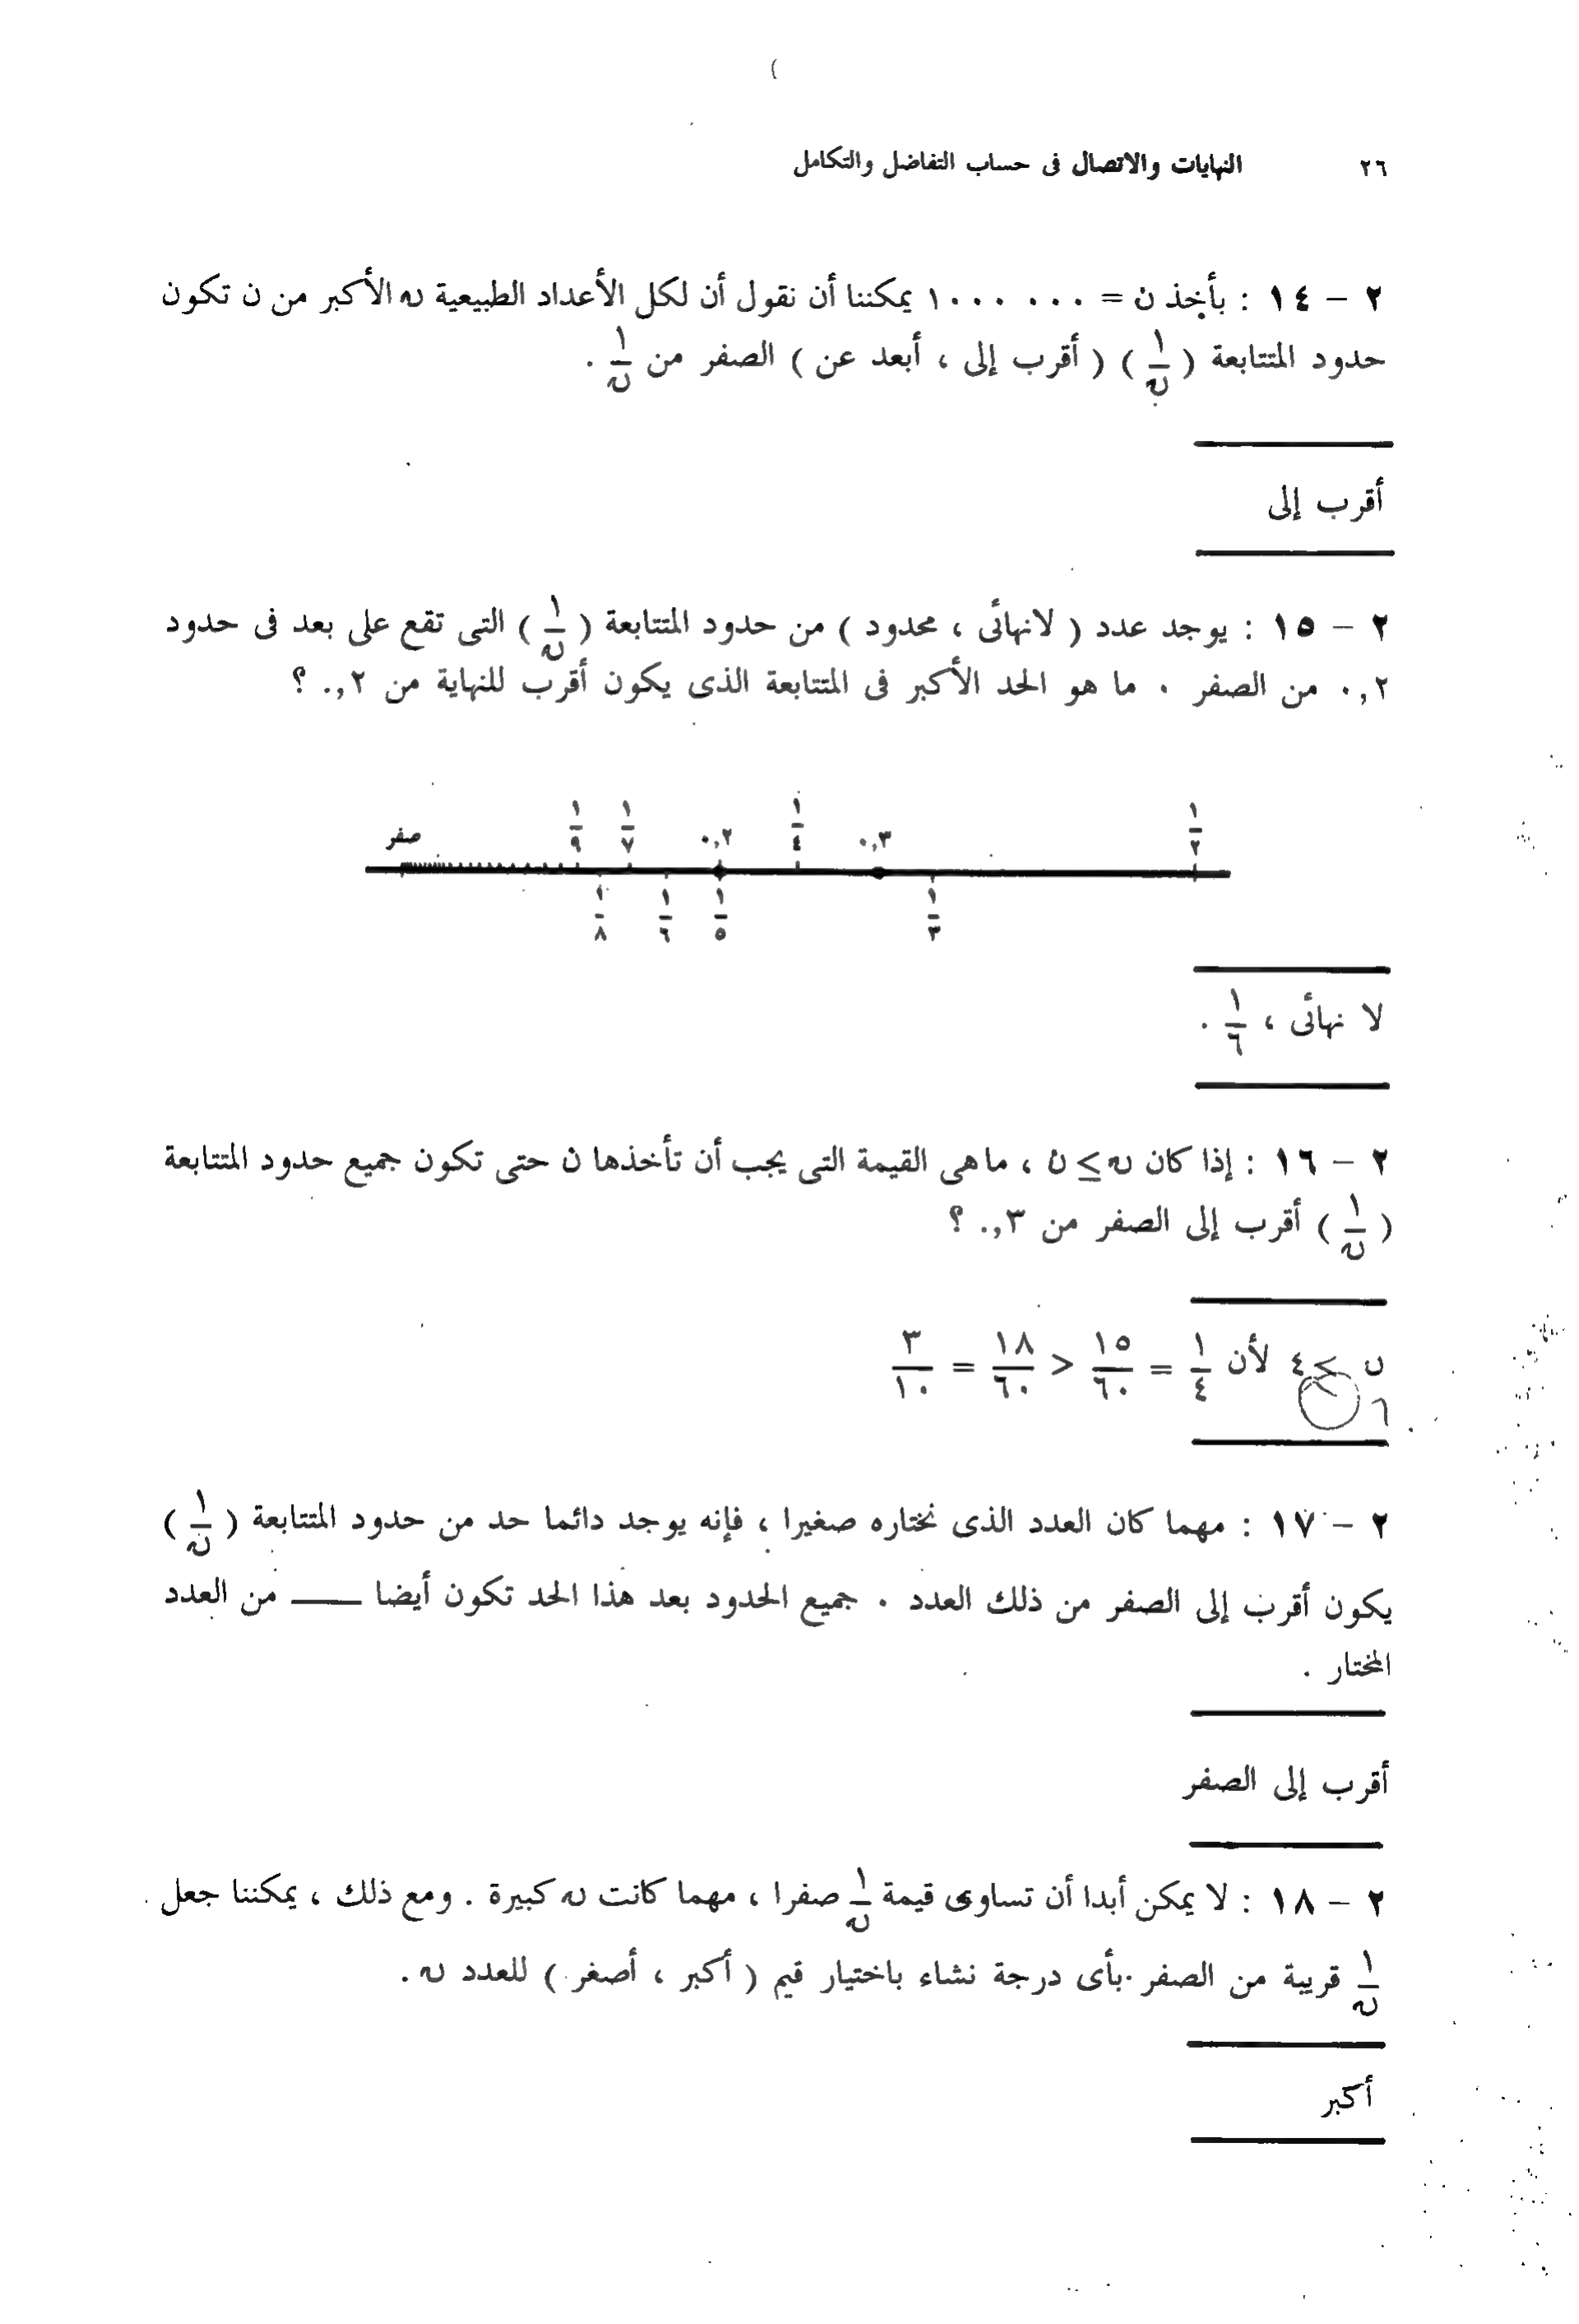 ٢٦ النهايات والاتصال فى حساب التفاضل والتكامل
٢ – ١٤ : بأخذ ن = ١٠٠٠ ٠٠٠ يمكننا أن نقول أن لكل الأعداد الطبيعية ں الأكبر من ن تكون
حدود المتتابعة ( ١/ں ) ( أقرب إلى ، أبعد عن ) الصفر من ١/ں .
أقرب إلى
٢ – ١٥ : يوجد عدد ( لانهائى ، محدود ) من حدود المتتابعة ( ١/ں ) التى تقع على بعد فى حدود
٠,٢ من الصفر . ما هو الحد الأكبر فى المتتابعة الذى يكون أقرب للنهاية من ٠,٢ ؟
صفر ١/٩ ١/٧ ٠,٢ ١/٤ ٠,٣ ١/٢
١/٨ ١/٦ ١/٥ ١/٣
لا نهائى ، ١/٦ .
٢ – ١٦ : إذا كان ں ≥ ن ، ماهى القيمة التى يجب أن تأخذها ن حتى تكون جميع حدود المتتابعة
( ١/ں ) أقرب إلى الصفر من ٠,٣ ؟
ں ≥ ٤ لأن ١/٤ = ١٥/٦٠ < ١٨/٦٠ = ٣/١٠
٢ – ١٧ : مهما كان العدد الذى نختاره صغيرا ، فإنه يوجد دائما حد من حدود المتتابعة ( ١/ں )
يكون أقرب إلى الصفر من ذلك العدد . جميع الحدود بعد هذا الحد تكون أيضا ـــــ من العدد
المختار .
أقرب إلى الصفر
٢ – ١٨ : لا يمكن أبدا أن تساوى قيمة ١/ں صفرا ، مهما كانت ں كبيرة . ومع ذلك ، يمكننا جعل
١/ں قريبة من الصفر بأى درجة نشاء باختيار قيم ( أكبر ، أصغر ) للعدد ں .
أكبر